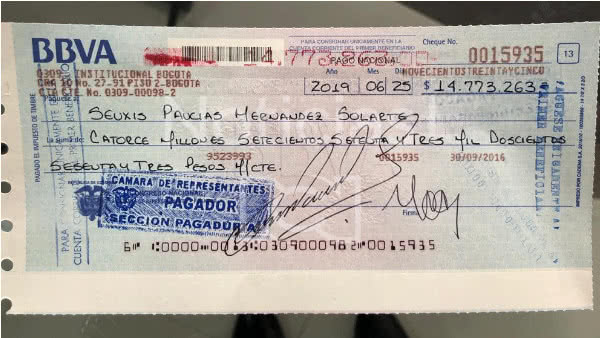 BBVA
PARA CONSIGNAR UNICAMENTE EN LA
CUENTA CORRIENTE DEL PRIMER BENEFICIARIO
PAGO NACIONAL
Cheque No.
0015935
13
0309 INSTITUCIONAL BOGOTA
CRA 10 No. 27-91 PISO 2-BOGOTA
CTA CTE No. 0309-00098-2
Año Mes Día
NOVECIENTOSTREINTAYCINCO
2019 06 25 $ 14.773.263
Páguese a:
SEUXIS PAUCIAS HERNANDEZ SOLARTE
La suma de:
CATORCE MILLONES SETECIENTOS SETENTA Y TRES MIL DOSCIENTOS
9523993 0015935 30/09/2016
SESENTA Y TRES PESOS M/CTE.
CAMARA DE REPRESENTANTES
CONGRESO NACIONAL
PAGADOR
SECCION PAGADURIA
Firma
0000 0309000982 0015935
PAGADO EL IMPUESTO DE TIMBRE
PAGUESE UNICAMENTE
AL PRIMER BENEFICIARIO